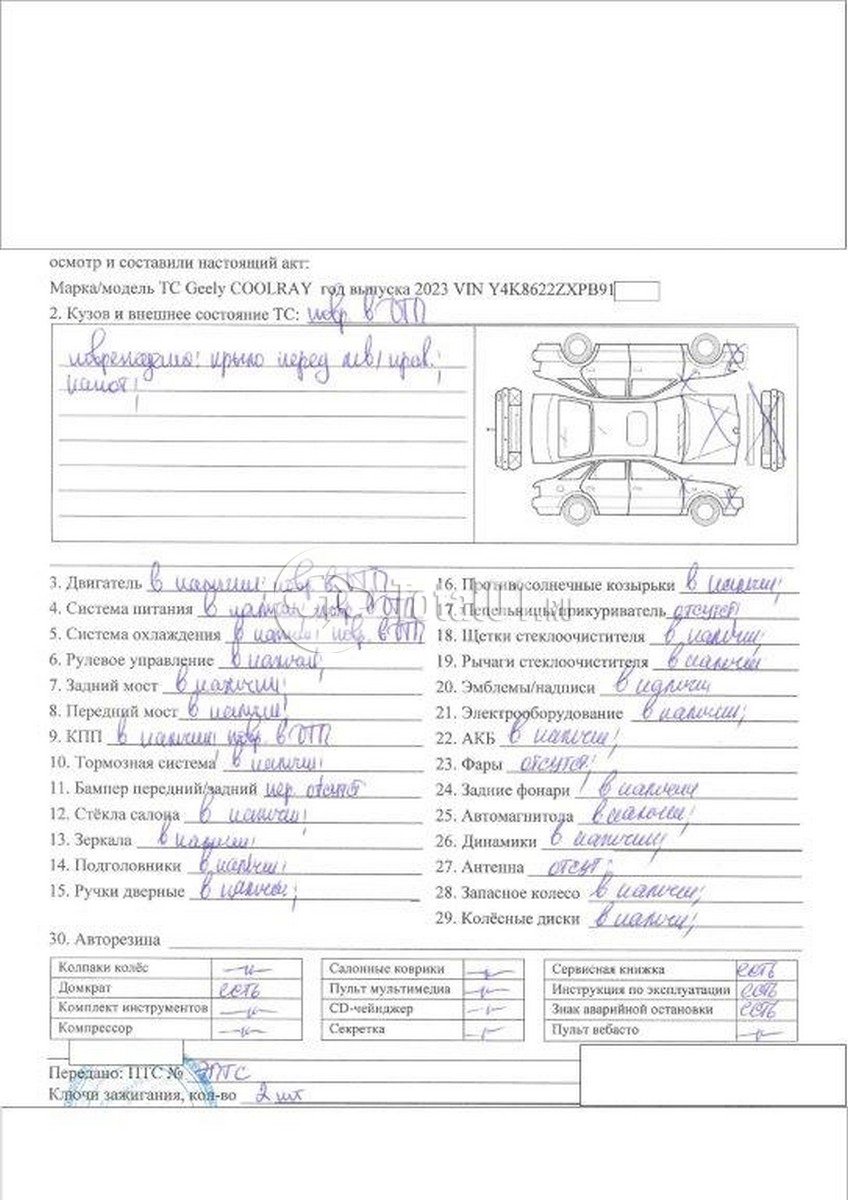 осмотр и составили настоящий акт:
Марка/модель ТС Geely COOLRAY год выпуска 2023 VIN Y4K8622ZXPB91
2. Кузов и внешнее состояние ТС: повр. в ДТП
повреждены: крыло перед лев/ прав.;
капот;
3. Двигатель в наличии; повр. в ДТП
4. Система питания в наличии повр. в ДТП
5. Система охлаждения в наличии повр. в ДТП
6. Рулевое управление в наличии;
7. Задний мост в наличии;
8. Передний мост в наличии;
9. КПП в наличии повр. в ДТП
10. Тормозная система в наличии;
11. Бампер передний/задний пер. отсутст
12. Стёкла салона в наличии;
13. Зеркала в наличии;
14. Подголовники в наличии;
15. Ручки дверные в наличии;
16. Противосолнечные козырьки в наличии;
17. Пепельницы/прикуриватель отсутст
18. Щетки стеклоочистителя в наличии;
19. Рычаги стеклоочистителя в наличии
20. Эмблемы/надписи в наличии
21. Электрооборудование в наличии;
22. АКБ в наличии;
23. Фары отсутст;
24. Задние фонари в наличии
25. Автомагнитола в наличии;
26. Динамики в наличии;
27. Антенна отсут;
28. Запасное колесо в наличии;
29. Колёсные диски в наличии;
30. Авторезина
Колпаки колёс
Домкрат есть
Комплект инструментов
Компрессор
Салонные коврики
Пульт мультимедиа
CD-чейнджер
Секретка
Сервисная книжка есть
Инструкция по эксплуатации есть
Знак аварийной остановки есть
Пульт вебасто
Передано: ПТС № ЭПТС
Ключи зажигания, кол-во 2 шт